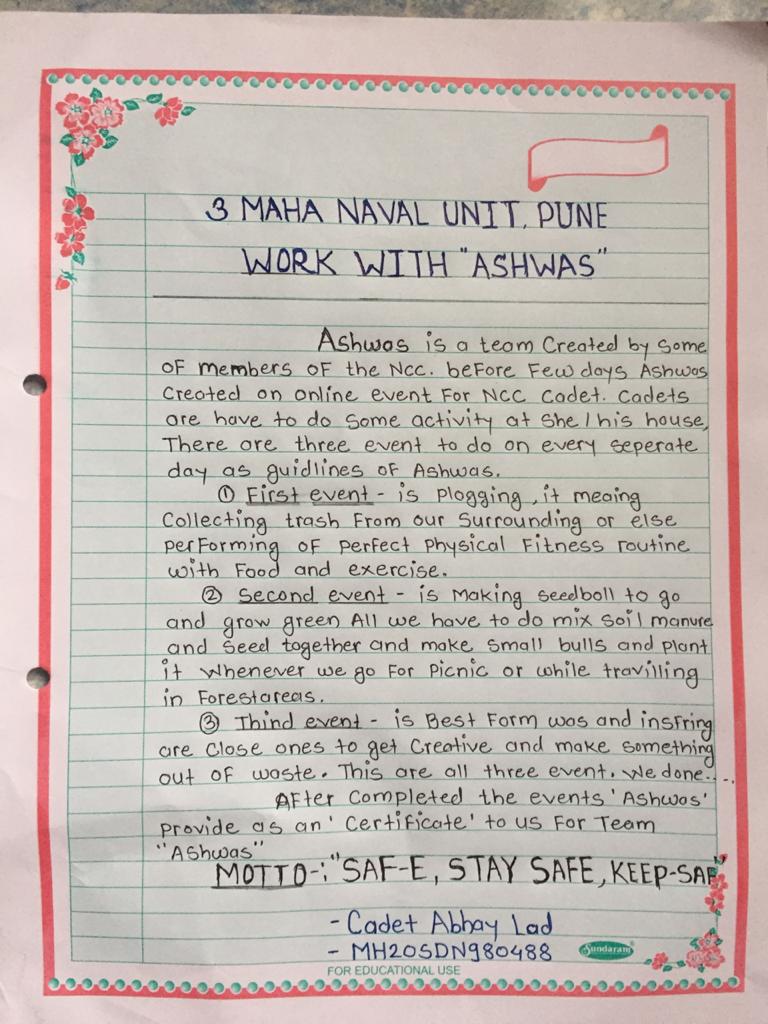 3 MAHA NAVAL UNIT, PUNE
WORK WITH "ASHWAS"
Ashwas is a team Created by some
of members of the Ncc. before Few days Ashwas
Created on online event For NCC Cadet. Cadets
are have to do some activity at She/his house,
There are three event to do on every seperate
day as guidlines of Ashwas.
① First event - is Plogging, it meaing
Collecting trash From our Surrounding or else
performing of perfect Physical Fitness routine
with Food and exercise.
② Second event - is Making seedboll to go
and grow green All we have to do mix soil manure
and seed together and make small bulls and plant
it whenever we go For Picnic or while travilling
in Forestareas.
③ Thind event - is Best Form was and insfring
are close ones to get Creative and make something
out of waste. This are all three event. We done....
After Completed the events 'Ashwas'
Provide as an 'Certificate' to us For Team
"Ashwas"
MOTTO-: "SAF-E, STAY SAFE, KEEP-SAF"
- Cadet Abhay Lad
- MH20SDN980488
Sundaram
FOR EDUCATIONAL USE